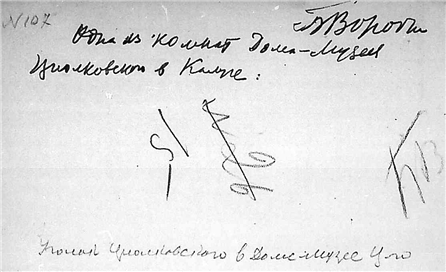 N107
Т Вороб
Одна из комнат Дома-Музея
Циолковского в Калуге:
№26
Б В
Уголок Циолковского в Доме музее Ц-го